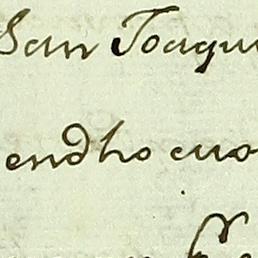 San Joaqu
endho cuo